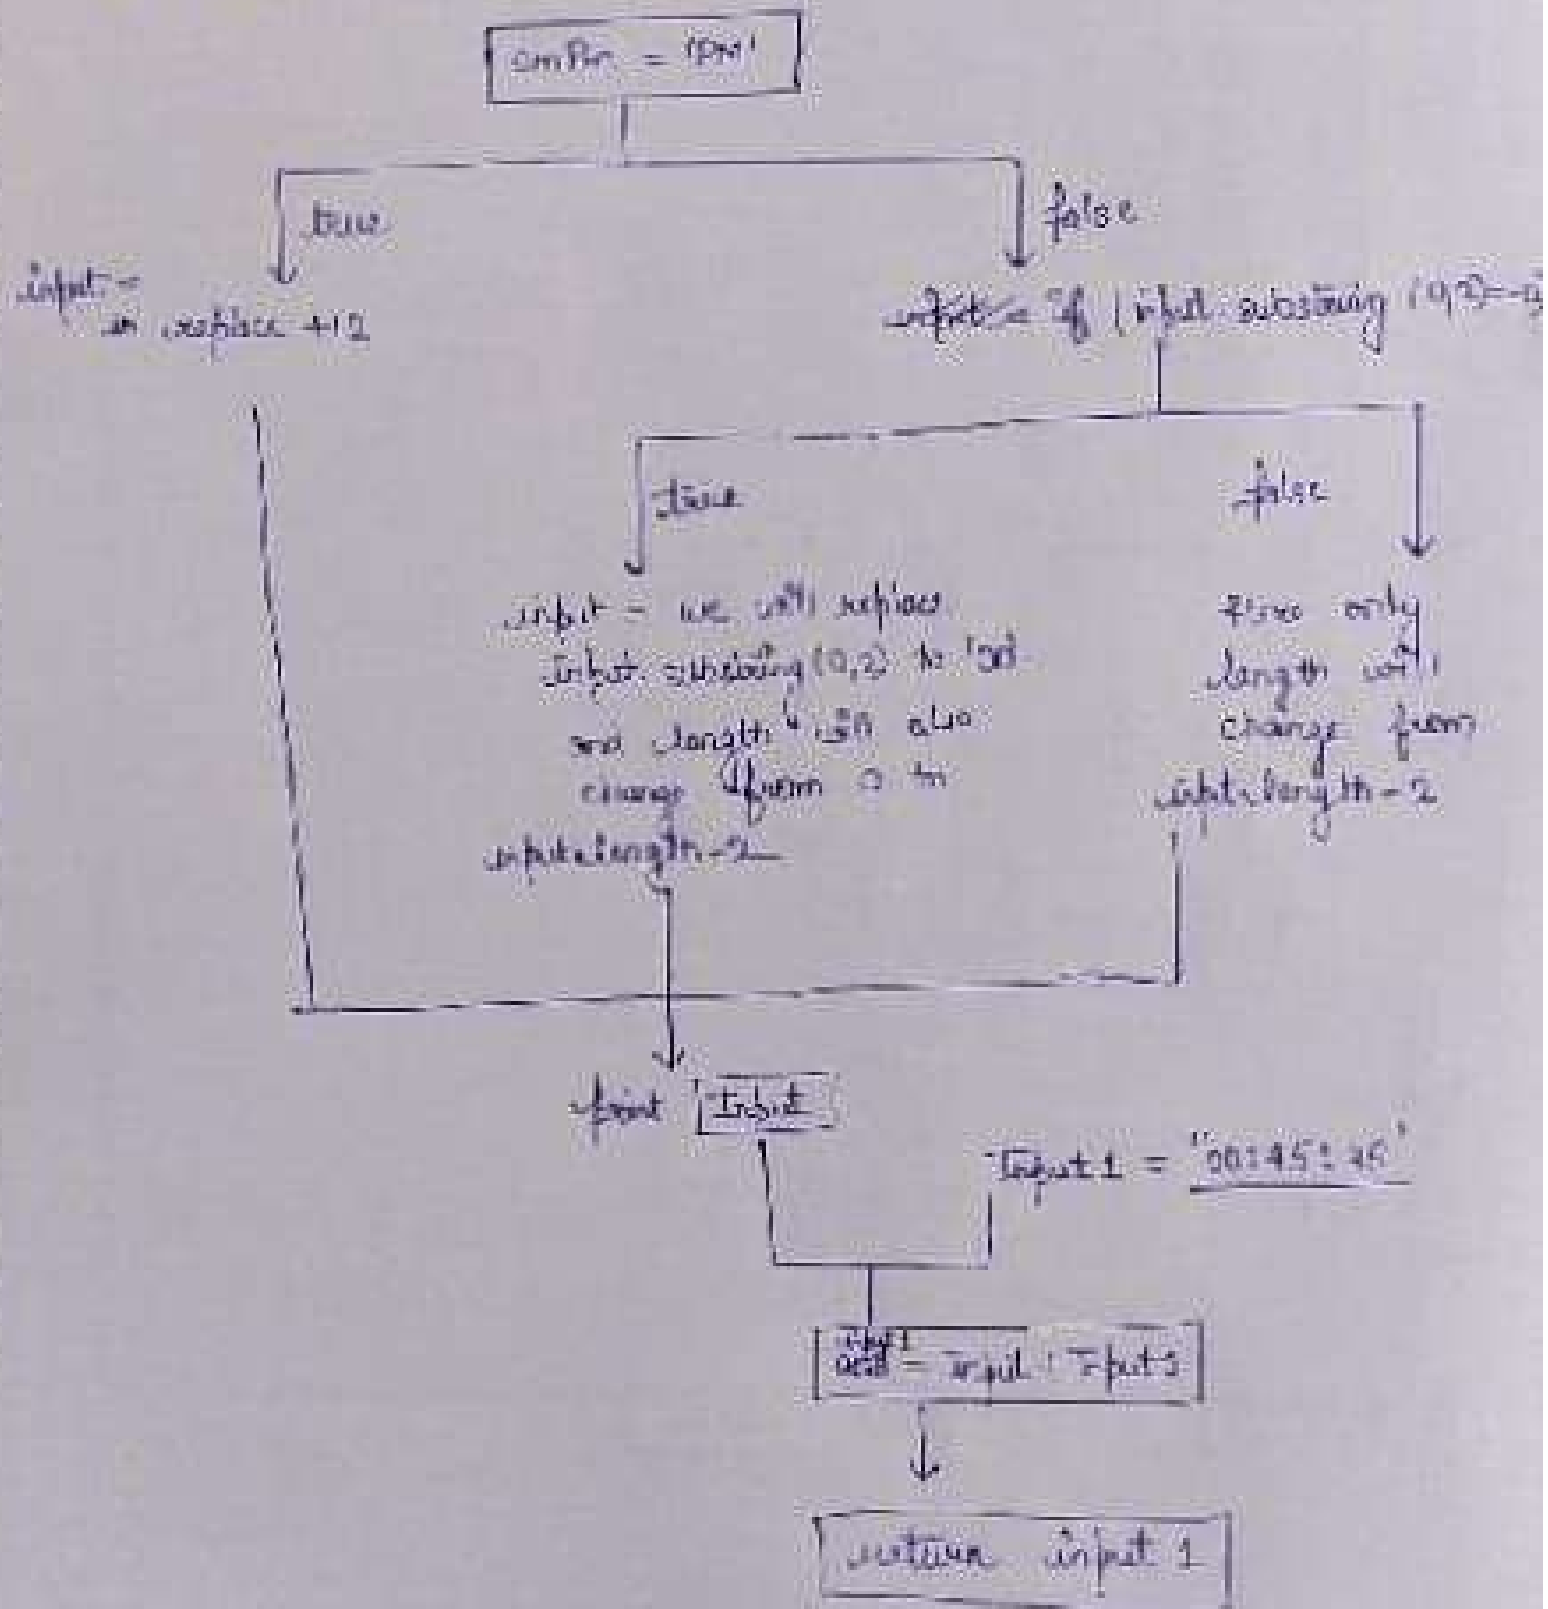 = 'PM'
true
false
input =
in replace +12
if (input. substring (0,2)=
true
false
input = we will replace
input. substring (0,2) to '00'
and length will also
change from 0 to
input.length-2
only
length will
change from
input.length-2
print Input
Input 1 = "00:45:
input 1
= input
return input 1